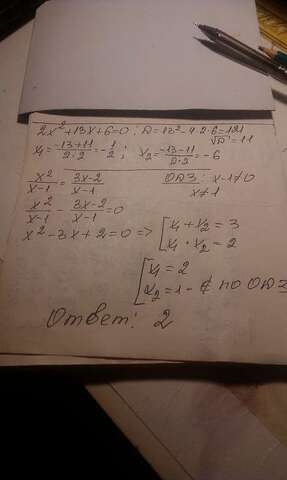 2x²+13x+6=0; D=13²-4·2·6=121
√D=11
x₁=(-13+11)/(2·2)=-1/2; x₂=(-13-11)/(2·2)=-6
x²/(x-1)=(3x-2)/(x-1) ОДЗ: x-1≠0
x≠1
x²/(x-1)-(3x-2)/(x-1)=0
x²-3x+2=0 => [x₁+x₂=3
x₁·x₂=2
[x₁=2
x₂=1-∉ по ОДЗ
Ответ: 2